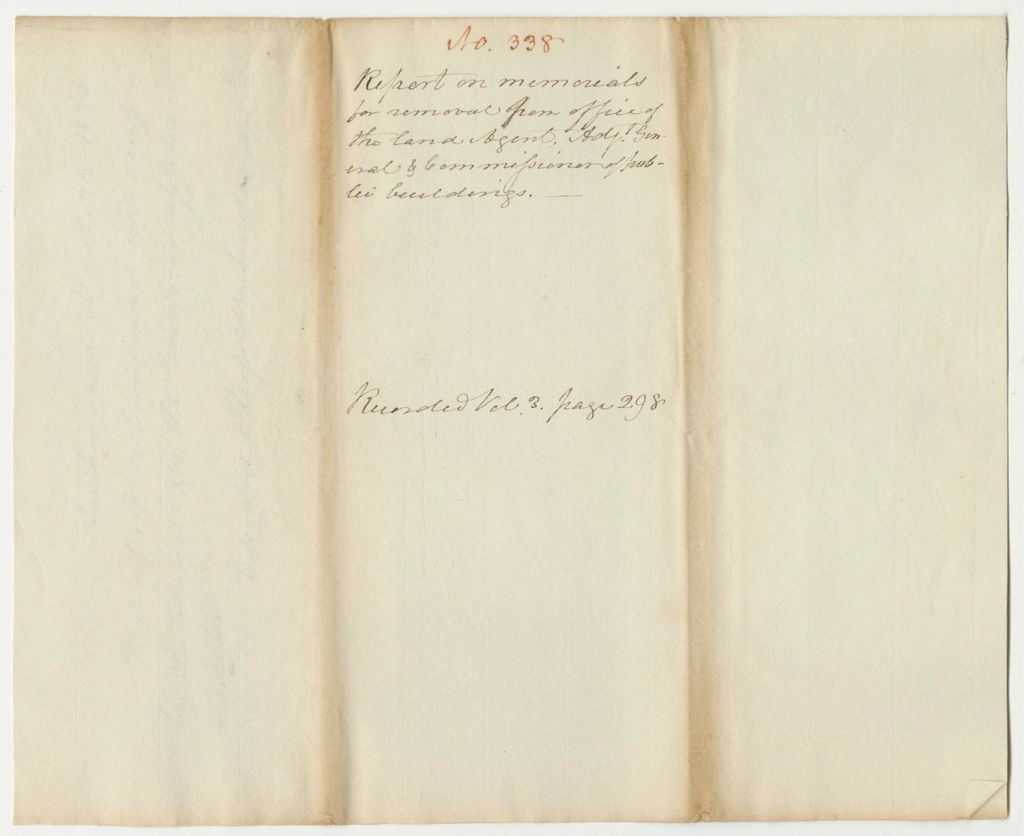 No. 338
Report on memorials
for removal from office of
the land Agent, Adjt. Gen-
eral & Commissioner of pub-
lic buildings. —
Recorded Vol. 3. page 298